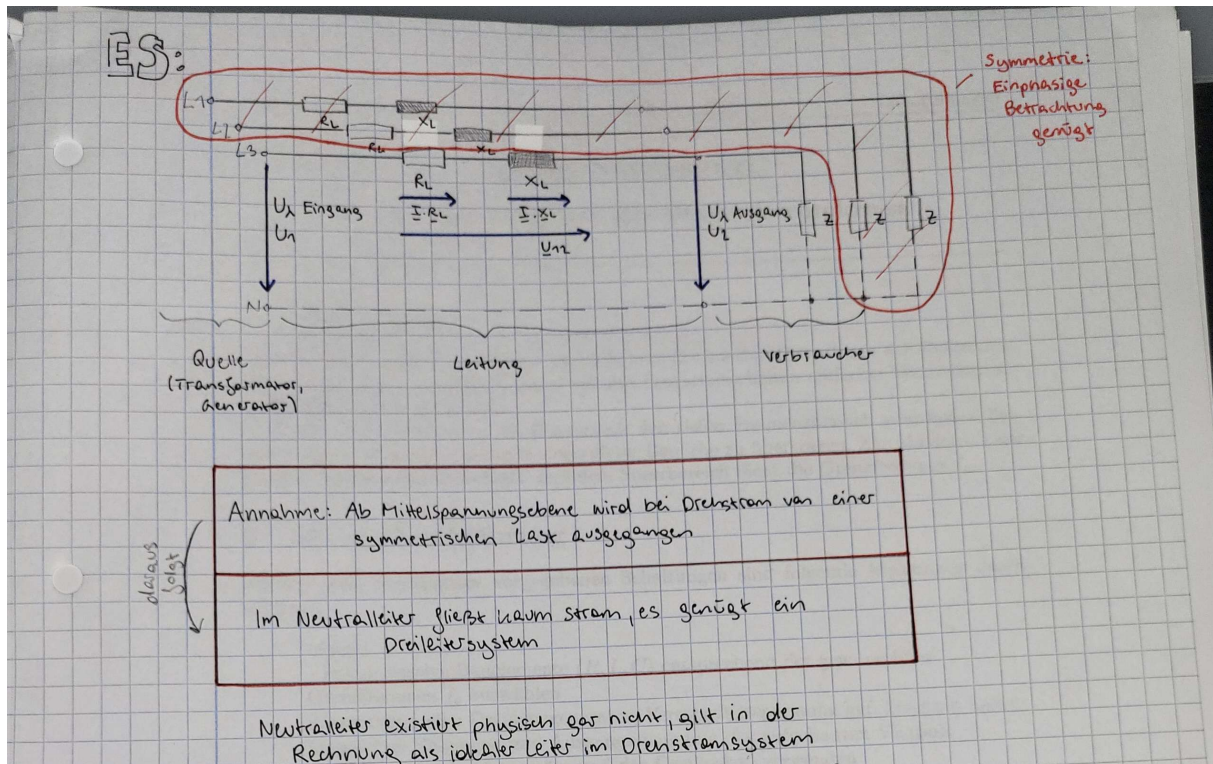 ES:
Symmetrie:
Einphasige
Betrachtung
genügt
L1
RL
XL
L2
RL
XL
L3
RL
XL
I·RL
I·XL
U12
Uλ Eingang
U1
Uλ Ausgang
U2
Z
Z
Z
N
Quelle
(Transformator,
Generator)
Leitung
Verbraucher
daraus
folgt
Annahme: Ab Mittelspannungsebene wird bei Drehstrom von einer
symmetrischen Last ausgegangen
Im Neutralleiter fließt kaum Strom, es genügt ein
Dreileitersystem
Neutralleiter existiert physisch gar nicht, gilt in der
Rechnung als idealer Leiter im Drehstromsystem